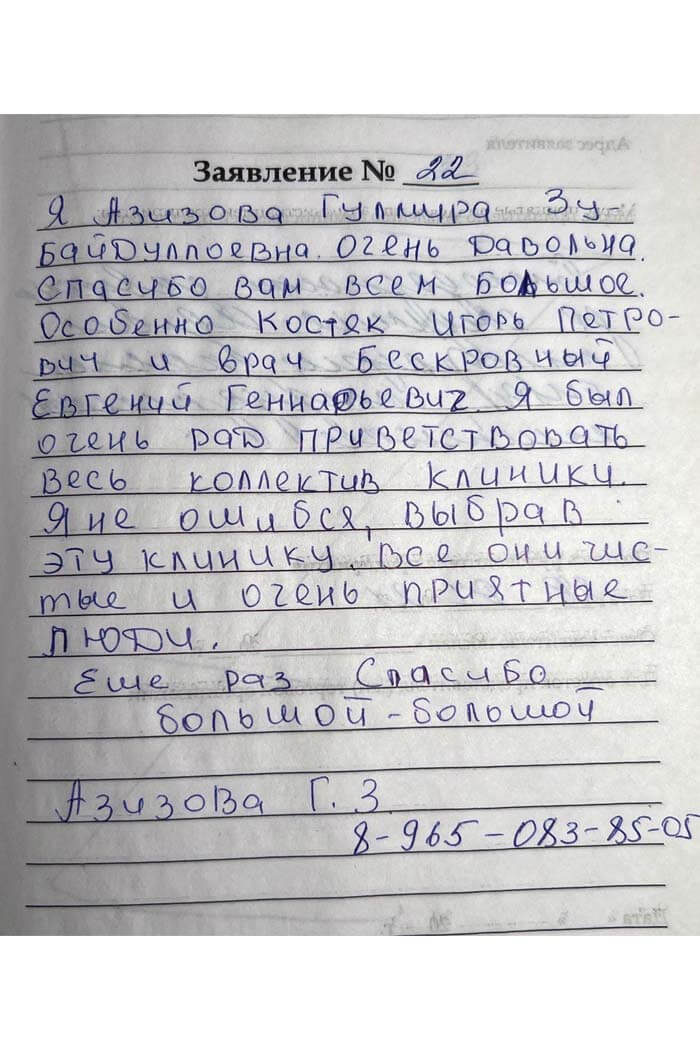 Заявление № 22
Я Азизова Гулмира Зу-
байдуллоевна. Очень давольна.
Спасибо вам всем большое.
Особенно Костяк Игорь Петро-
вич и врач Бескровный
Евгений Геннадьевич. Я был
очень рад приветствовать
весь коллектив клиники.
Я не ошибся, выбрав
эту клинику. Все они чис-
тые и очень приятные
люди.
Еше раз Спасибо
большой-большой
Азизова Г. З
8-965-083-85-05